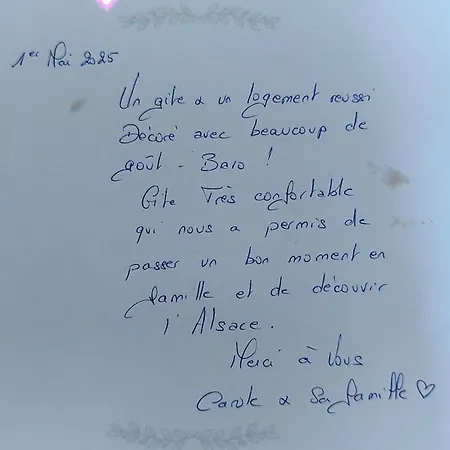 1er Mai 2025
Un gite & un logement reussi
Décoré avec beaucoup de
goût - Bravo !
Gite Très confortable
qui nous a permis de
passer un bon moment en
famille et de découvir
l'Alsace.
Merci à Vous
Carole & Sa famille ♡